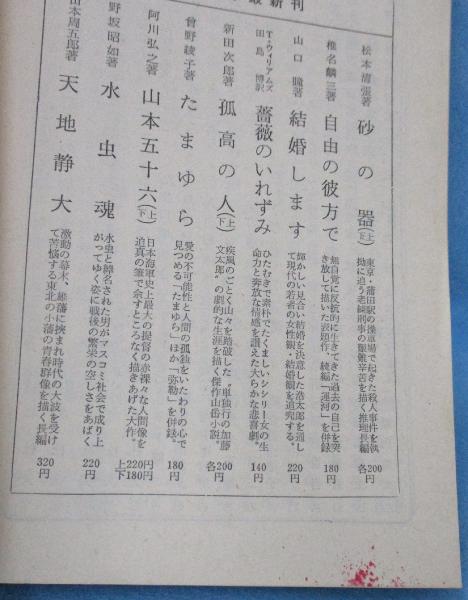 新刊
松本清張著 砂の器(上)(下) 東京・蒲田駅の操車場で起きた殺人事件を執拗に追う老練刑事の艱難辛苦を描く推理長編 各200円
椎名麟三著 自由の彼方で 無自覚に反抗的に生きてきた過去の自己を突き放して描いた表題作、続編「運河」を併録 180円
山口瞳著 結婚します 輝かしい見合い結婚を決意した浩太郎を通して現代の若者の女性観・結婚観を追究する。 220円
T・ウィリアムズ 田島博訳 薔薇のいれずみ ひたむきで素朴でたくましいシシリー女の生命力と奔放な情感を讃えた大らかな悲喜劇。 140円
新田次郎著 孤高の人(上)(下) 疾風のごとく山々を踏破した“単独行の加藤文太郎”の劇的な生涯を描く傑作山岳小説 各200円
曾野綾子著 たまゆら 愛の不可能性と人間の孤独をいたわりの心で見つめる「たまゆら」ほか「弥勒」を併録。 180円
阿川弘之著 山本五十六(上)(下) 日本海軍史上最大の提督の赤裸々な人間像を迫真の筆で余すところなく描きあげた大作。 上220円 下180円
野坂昭如著 水虫魂 水虫と綽名された男がマスコミ社会で成り上がってゆく姿に戦後の繁栄の空しさをあばく 220円
山本周五郎著 天地静大 激動の幕末、雄藩に挟まれ時代の大波を受けて苦悩する東北の小藩の青春群像を描く長編 320円